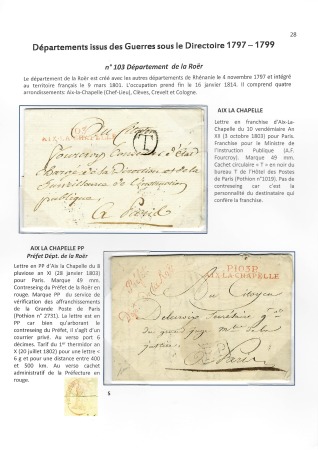 28
Départements issus des Guerres sous le Directoire 1797 – 1799
n° 103 Département de la Roër
Le département de la Roër est créé avec les autres départements de Rhénanie le 4 novembre 1797 et intégré
au territoire français le 9 mars 1801. L'occupation prend fin le 16 janvier 1814. Il comprend quatre
arrondissements: Aix-la-Chapelle (Chef-Lieu), Clèves, Crevelt et Cologne.
AIX LA CHAPELLE
Lettre en franchise d'Aix-La-
Chapelle du 10 vendémiaire An
XII (3 octobre 1803) pour Paris.
Franchise pour le Ministre de
l'instruction Publique (A.F.
Fourcroy). Marque 49 mm.
Cachet circulaire « T » en noir du
bureau T de l'Hôtel des Postes
de Paris (Pothion n°1019). Pas de
contreseing car c'est la
personnalité du destinataire qui
confère la franchise.
AIX-LA-CHAPELLE
T
Au Citoyen
Fourcroy Conseiller d'état
chargé de la Direction et de la
Surveillance de l'instruction
publique
à Paris
AIX LA CHAPELLE PP
Préfet Dépt. de la Roër
Lettre en PP d'Aix la Chapelle du 8
pluviose an XI (28 janvier 1803)
pour Paris. Marque 49 mm.
Contreseing du Préfet de la Roër en
rouge. Marque PP du service de
vérification des affranchissements
de la Grande Poste de Paris
(Pothion n° 2731). La lettre est en
PP car bien qu'arborant le
contreseing du Préfet, il s'agit d'un
courrier privé. Au verso port 6
décimes. Tarif du 1er thermidor an
X (20 juillet 1802) pour une lettre <
6 g et pour une distance entre 400
et 500 km. Au verso cachet
administratif de la Préfecture en
rouge.
P103P
AIX-LA-CHAPELLE
Au Citoyen
à Paris
5